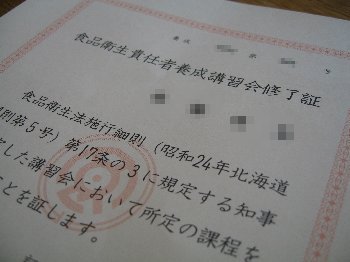 食品衛生責任者養成講習会修了証
食品衛生法施行細則（昭和24年北海道
則第５号）第17条の３に規定する知事
した講習会において所定の課程を
ことを証します。